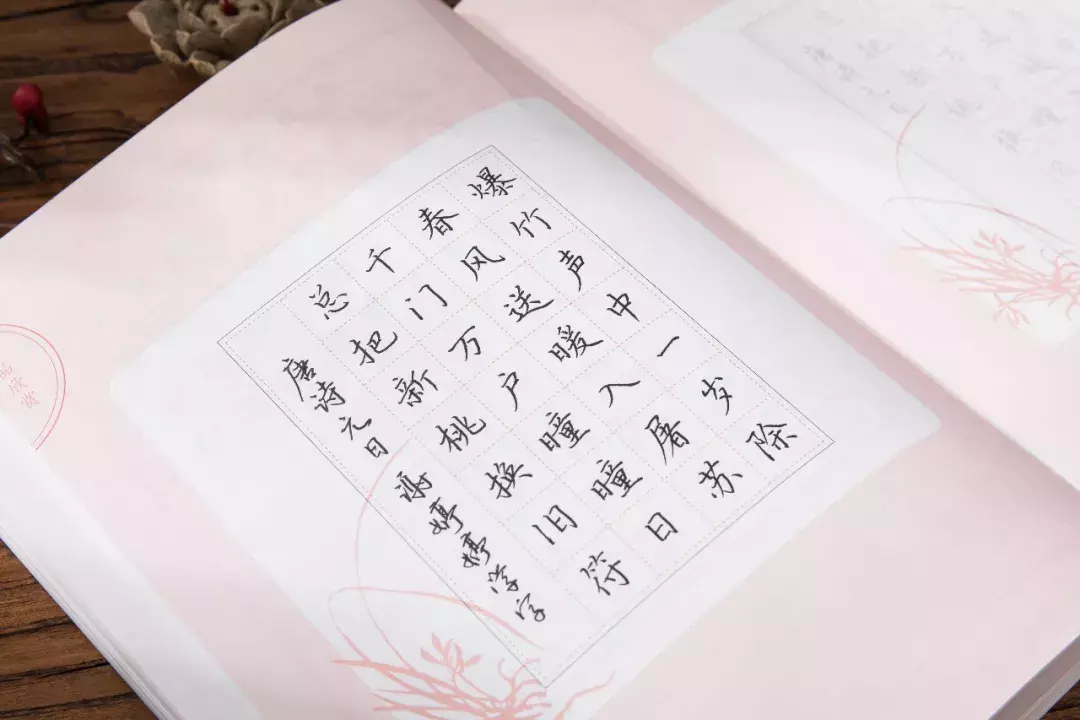 爆竹声中一岁除
春风送暖入屠苏
千门万户曈曈日
总把新桃换旧符
唐诗元日 谢婷婷
品欣赏